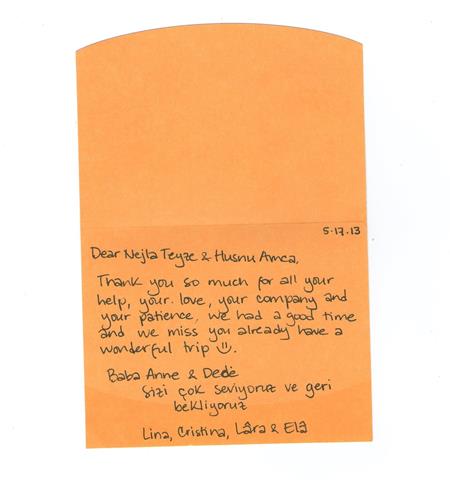 5.17.13
Dear Nejla Teyze & Husnu Amca,
Thank you so much for all your
help, your love, your company and
your patience, we had a good time
and we miss you already have a
wonderful trip ☺.
Baba Anne & Dede
Sizi çok seviyoruz ve geri
bekliyoruz
Lina, Cristina, Lâra & Elâ